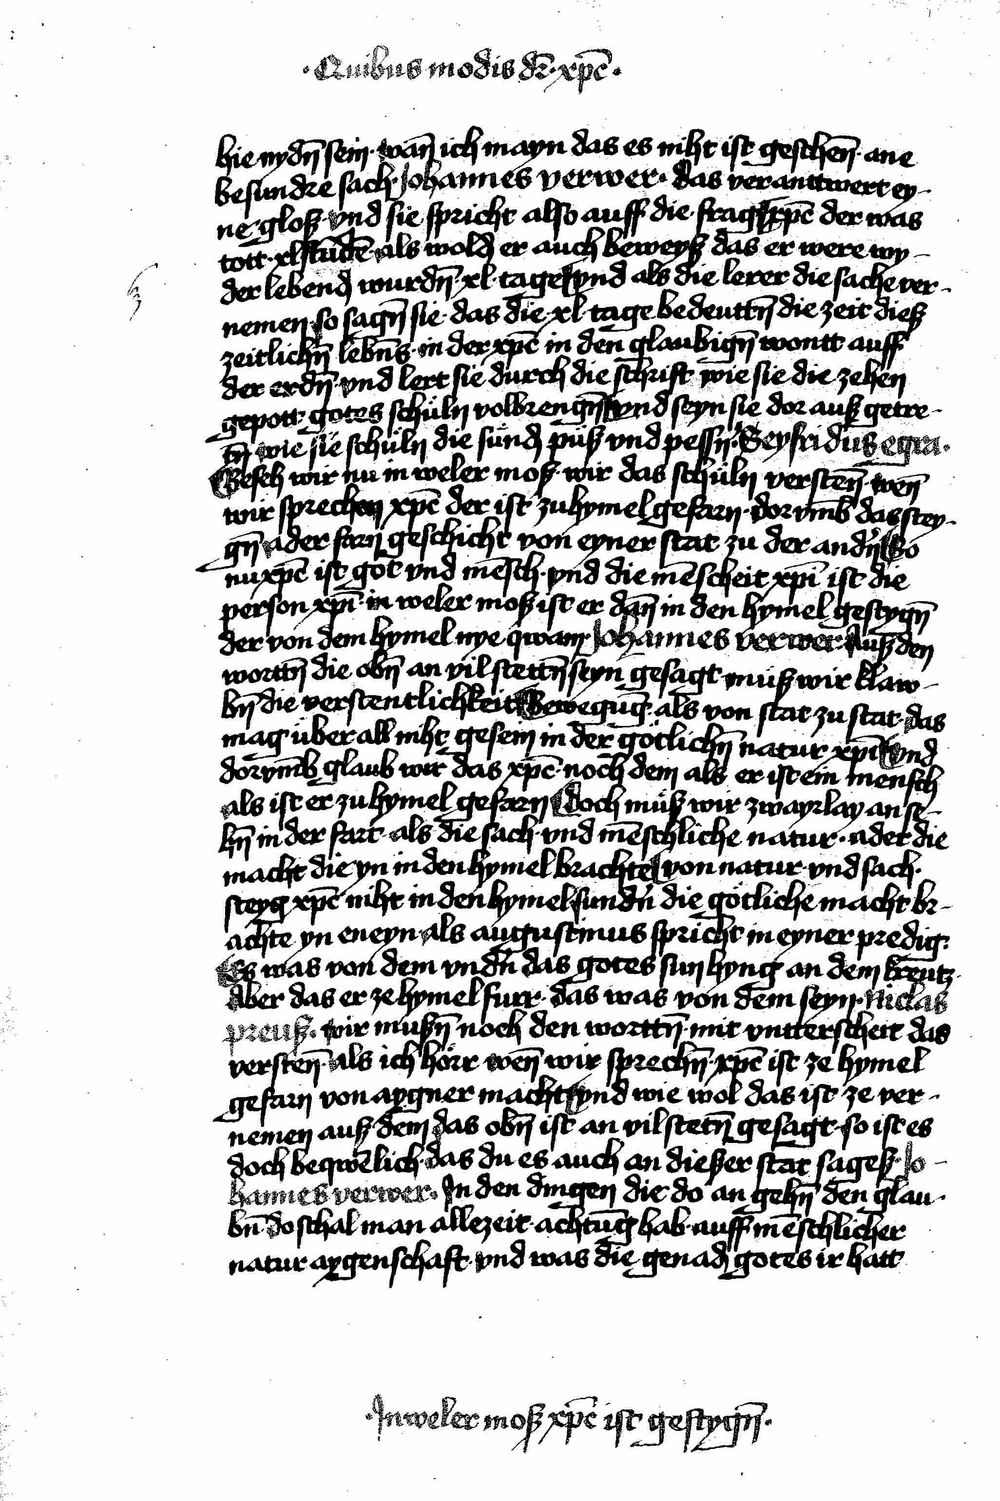 · Quibus modis dr̄ · xp̄c ·
hie nydn̄ sein · wan̄ ich mayn das es niht ist geschen̄ · ane
besundre sach · Johannes verwer · das verantwert ey-
ne gloß vnd sie spricht also auff die frag xp̄c der was
tott · xl stūde als wold er auch beweyß das er were wy-
der lebend wurdn̄ · xl · tage vnd als die lerer die sache ver-
nemen so sagn̄ sie · das die · xl · tage bedeuttn̄ die zeit dieß
zeitlichn̄ lebn̄s · in der xp̄c in den glaubign̄ wontt auff
der erdn̄ · vnd lert sie durch die schrift wie sie die zehen
gepott gotes schüln volbrengn̄ vnd seyn sie dor auß getre-
tn̄ wie sie schüln die sünd püß vnd pessn̄ · Seyfridus egra ·
Geseh wir nu in weler moß wir das schüln versten̄ wen̄
wir sprechen xp̄c der ist zu hymel gefarn · dorvm̄b das stey-
gn̄ ader farn geschicht von eyner stat zu der andn̄ So
nu xp̄c ist got vnd mēsch · vnd die mēscheit xp̄i ist die
person xp̄i · in weler moß ist er dan̄ in den hymel gestygn̄
der von dem hymel nye qwam Johannes verwer Auß den
worttn̄ die obn̄ an vil stettn̄ seyn gesagt müß wir klaw-
bn̄ die verstentlichkeit Bewegūg als von stat zu stat · das
mag über all niht gesein in der götlichn̄ natur xp̄i vnd
dorvm̄b glaub wir das xp̄c · noch dem als er ist ein mensch
als ist er zu hymel gefarn doch müß wir zwayrlay an se-
hn̄ in der fart als die sach · vnd mēschliche natur · ader die
macht die yn in den hymel brachte von natur · vnd sach ·
steyg xp̄c niht in den hymel sundn̄ die götliche macht br-
achte yn eneyn als augustinus spricht in eyner predig ·
Es was von dem vndn̄ das gotes sun hyng an dem kreutz ·
Aber das er ze hymel furr · das was von dem seyn · Niclas
preuß · wir mußn̄ noch den worttn̄ mit vntterscheit das
versten̄ · als ich hörr wen̄ wir sprechn̄ · xp̄c ist ze hymel
gefarn von aygner macht vnd wie wol das ist ze ver-
nemen auß dem das obn̄ ist an vil stetn̄ gesagt · so ist es
doch beqwēlich das du es auch an dießer stat sagest · Jo-
hannes verwer · In den dingen die do an gehn̄ den glau-
bn̄ do schal man allezeit achtūg hab auff mēschlicher
natur aygenschaft · vnd was die genad gotes ir hatt
· In weler moß xp̄c ist gestygn̄ ·